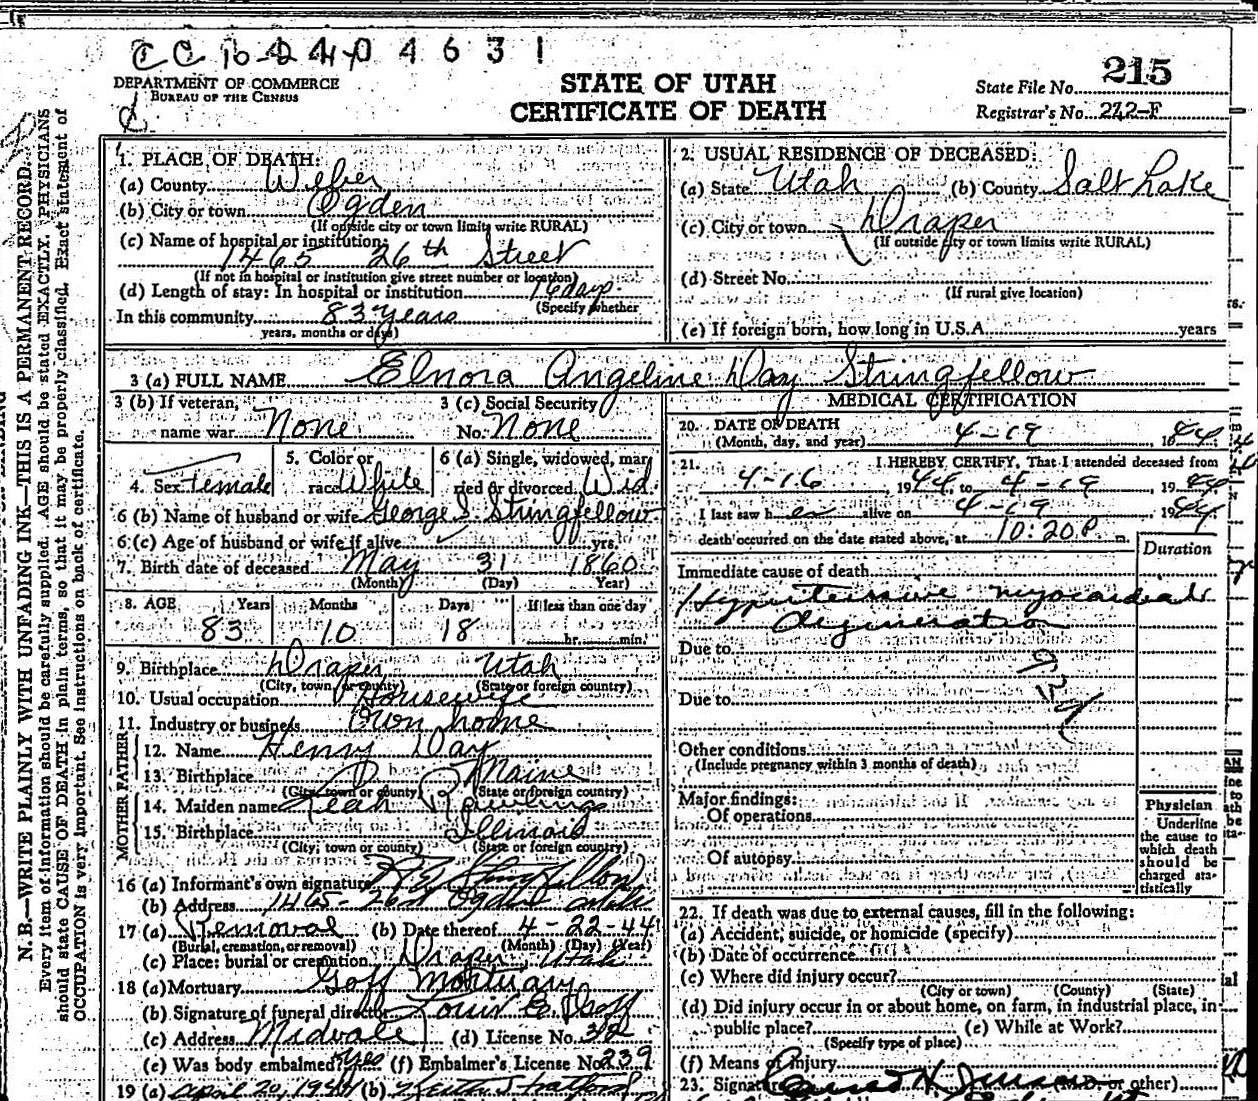 4 6 3 1
DEPARTMENT OF COMMERCE
BUREAU OF THE CENSUS
STATE OF UTAH
CERTIFICATE OF DEATH
State File No. 215
Registrar's No. 242-F
N. B.—WRITE PLAINLY WITH UNFADING INK—THIS IS A PERMANENT RECORD.
Every item of information should be carefully supplied. AGE should be stated EXACTLY. PHYSICIANS
should state CAUSE OF DEATH in plain terms, so that it may be properly classified. Exact statement of
OCCUPATION is very important. See instructions on back of certificate.
1. PLACE OF DEATH:
(a) County Weber
(b) City or town Ogden
(If outside city or town limits write RURAL)
(c) Name of hospital or institution:
1465 26th Street
(If not in hospital or institution give street number or location)
(d) Length of stay: In hospital or institution 16 days
(Specify whether
In this community 83 years
years, months or days)
2. USUAL RESIDENCE OF DECEASED:
(a) State Utah (b) County Salt Lake
(c) City or town Draper
(If outside city or town limits write RURAL)
(d) Street No.
(If rural give location)
(e) If foreign born, how long in U.S.A. years
3 (a) FULL NAME Elnora Angeline Day Stringfellow
3 (b) If veteran, name war None
3 (c) Social Security No. None
4. Sex Female
5. Color or race White
6 (a) Single, widowed, married or divorced Wid
6 (b) Name of husband or wife George S. Stringfellow
6 (c) Age of husband or wife if alive yrs.
7. Birth date of deceased May 31 1860
(Month) (Day) Year)
8. AGE Years Months Days If less than one day
83 10 18 hr. min.
9. Birthplace Draper Utah
(City, town, or county) (State or foreign country)
10. Usual occupation Housewife
11. Industry or business Own home
FATHER
12. Name Henry Day
13. Birthplace Maine
(City, town or county) (State or foreign country)
MOTHER
14. Maiden name Leah Rawlings
15. Birthplace Illinois
(City, town or county) (State or foreign country)
16 (a) Informant's own signature Stringfellow
(b) Address 1465- 26st Ogden
17 (a) Removal (b) Date thereof 4-22-44
(Burial, cremation, or removal) (Month) (Day) (Year)
(c) Place: burial or cremation Draper, Utah
18 (a) Mortuary Goff Mortuary
(b) Signature of funeral director Louis B. Goff
(c) Address Midvale (d) License No.
(e) Was body embalmed? yes (f) Embalmer's License No. 239
19 (a) April 20, 1944 (b)
MEDICAL CERTIFICATION
20. DATE OF DEATH
(Month, day, and year) 4-19 1944
21. I HEREBY CERTIFY, That I attended deceased from
4-16, 1944, to 4-19, 1944
I last saw her alive on 4-19, 1944
death occurred on the date stated above, at 10:20 P m.
Duration
Immediate cause of death
Hypertensive myocardial
degeneration
Due to
Due to
Other conditions
(Include pregnancy within 3 months of death)
Major findings:
Of operations
Of autopsy
Physician
Underline
the cause to
which death
should be
charged sta-
tistically
22. If death was due to external causes, fill in the following:
(a) Accident, suicide, or homicide (specify)
(b) Date of occurrence
(c) Where did injury occur?
(City or town) (County) (State)
(d) Did injury occur in or about home, on farm, in industrial place, in
public place? (e) While at Work?
(Specify type of place)
(f) Means of Injury
23. Signature (M.D. or other)